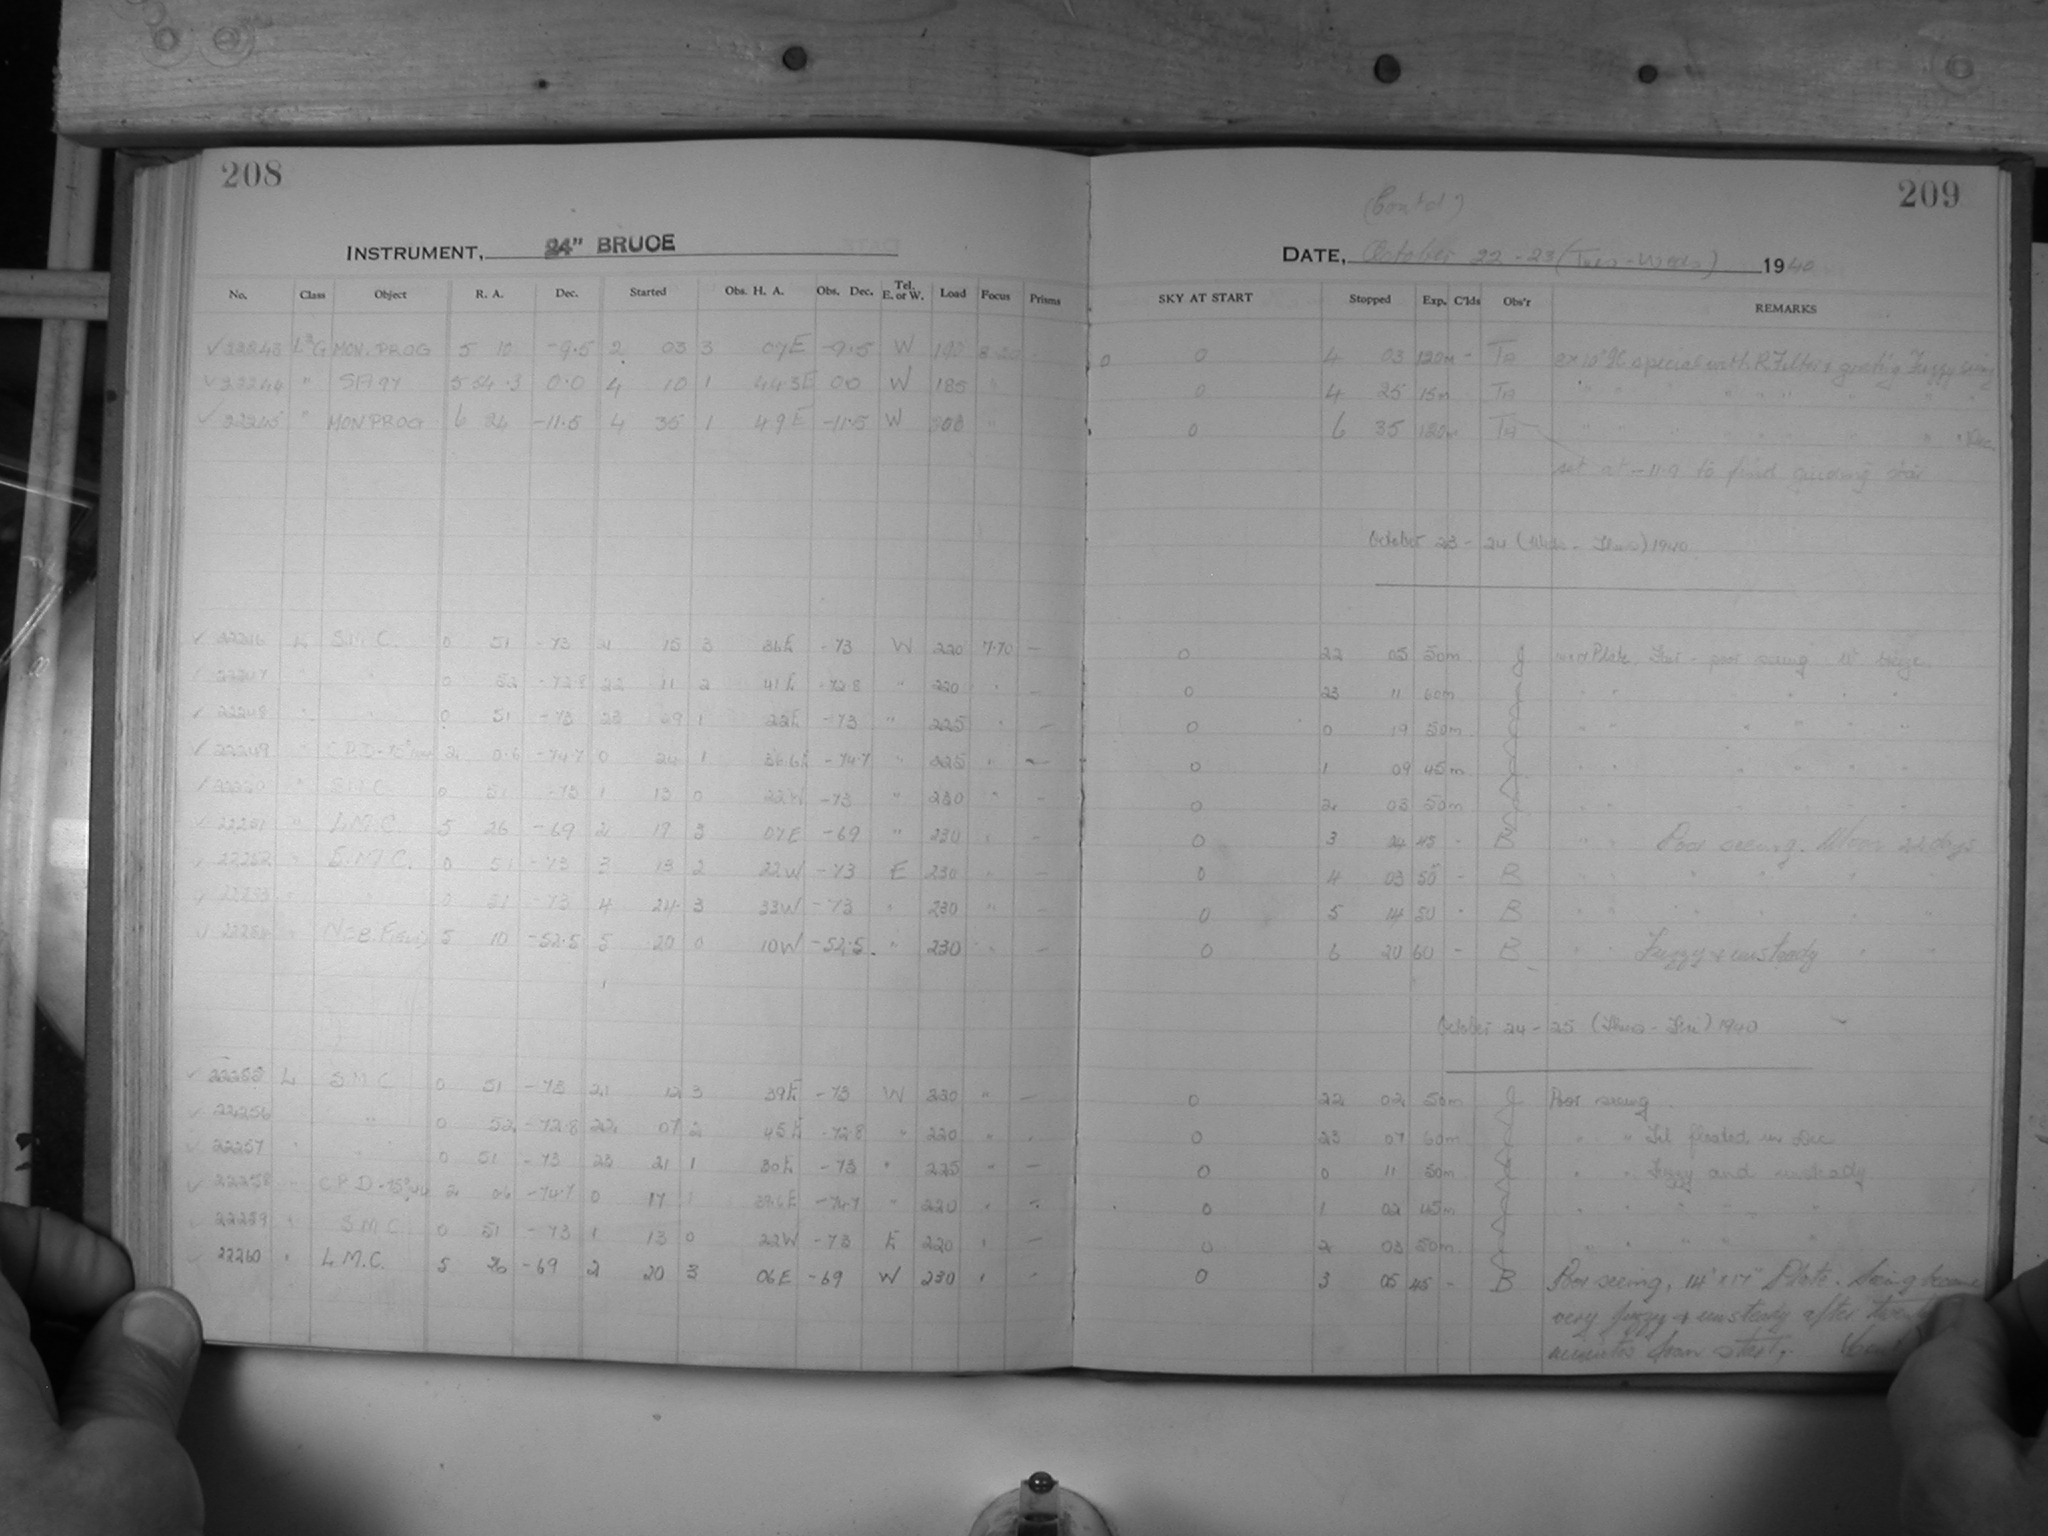 208
209
(Cont'd)
INSTRUMENT, 24" BRUCE
DATE, October 22-23 (Tues-Weds) 1940
No. Class Object R. A. Dec. Started Obs. H. A. Obs. Dec. Tel. E. or W. Load Focus Prisms SKY AT START Stopped Exp. C'lds Obs'r REMARKS
✓ 22243 MON. PROG 5 10 -9.5 2 03 3 07E -9.5 W 190 0 4 03 120m - TA special with R Filter & grating Fuzzy seeing
✓ 22244 " SA 97 5 54.3 0.0 4 10 1 44.3E 00 W 185 " 0 4 25 15m TA " " " "
✓ 22245 " MON PROG 6 24 -11.5 4 35 1 49E -11.5 W " 0 6 35 120m TA " " " "
set at -11.9 to find guiding star
October 23 - 24 (Weds - Thurs) 1940
✓ 22246 L S.M.C. 0 51 -73 21 15 3 36E -73 W 220 7.70 - 0 22 05 50m J Plate. Fair - poor seeing. W breeze
✓ 22247 " " 0 52 -72.8 22 11 2 41E -72.8 " 220 " - 0 23 11 60m " " " "
✓ 22248 " " 0 51 -73 23 29 1 22E -73 " 225 " - 0 0 19 50m " " " "
✓ 22249 " C.P.D -75° 2 0.6 -74.7 0 24 1 36.6E -74.7 " 225 " - 0 1 09 45m " " " "
✓ 22250 " S.M.C. 0 51 -73 1 13 0 22W -73 " 230 " - 0 2 03 50m " " " "
✓ 22251 " L.M.C. 5 26 -69 2 19 3 07E -69 " 230 " - 0 3 04 45 - B " " Poor seeing. Moon 22 days
✓ 22252 " S.M.C. 0 51 -73 3 13 2 22W -73 E 230 " - 0 4 03 50 - B " " " "
✓ 22253 " " 0 51 -73 4 24 3 33W -73 " 230 " - 0 5 14 50 - B " " " "
✓ 22254 " 5 10 -52.5 5 20 0 10W -52.5 " 230 " - 0 6 20 60 - B " " Fuzzy & unsteady " "
October 24 - 25 (Thurs - Fri) 1940
✓ 22255 L S.M.C 0 51 -73 21 12 3 39E -73 W 220 " - 0 22 02 50m J Poor seeing
✓ 22256 " 0 52 -72.8 22 07 2 45E -72.8 " 220 " - 0 23 07 60m " " Tel floated in Dec
✓ 22257 " " 0 51 -73 23 21 1 30E -73 " 225 " - 0 0 11 50m " " Fuzzy and unsteady
✓ 22258 " C.P.D -75° 44 2 0.6 -74.7 0 17 1 39.6E -74.7 " 220 " - 0 1 02 45m " " " "
✓ 22259 " S.M.C 0 51 -73 1 13 0 22W -73 E 220 " - 0 2 03 50m " " " "
✓ 22260 " L.M.C. 5 26 -69 2 20 3 06E -69 W 230 " - 0 3 05 45 - B Poor seeing, 14" x 17" Plate. Seeing became
very fuzzy & unsteady after
minutes from start.